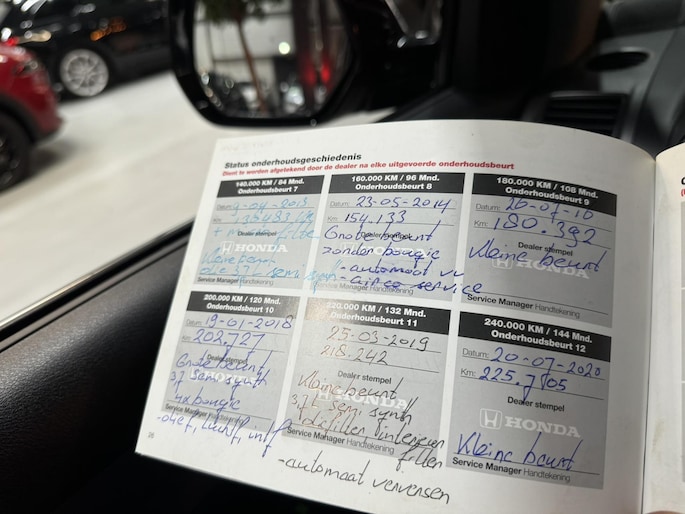 Status onderhoudsgeschiedenis
Dient te worden afgetekend door de dealer na elke uitgevoerde onderhoudsbeurt
140.000 KM / 84 Mnd.
Onderhoudsbeurt 7
-04-2013
Km:
HONDA
Kleine beurt
semi synt
Service Manager Handtekening
160.000 KM / 96 Mnd.
Onderhoudsbeurt 8
Datum: 23-05-2014
Km: 154.133
Grote beurt
zonder bougie
-automaat vv
airco service
Service Manager Handtekening
180.000 KM / 108 Mnd.
Onderhoudsbeurt 9
Datum:
Km: 180.392
Dealer stempel
Kleine beurt
HONDA
Service Manager Handtekening
200.000 KM / 120 Mnd.
Onderhoudsbeurt 10
Datum: 19-01-2018
Km: 202.727
Dealer stempel
Grote beurt
semi synth
4x bougie
220.000 KM / 132 Mnd.
Onderhoudsbeurt 11
25-03-2019
218.242
Dealer stempel
Kleine beurt
semi synth
oliefilter interieur
filter
Service Manager Handtekening
-automaat verversen
240.000 KM / 144 Mnd.
Onderhoudsbeurt 12
Datum: 20-07-2020
Km: 225.705
Dealer stempel
HONDA
Kleine beurt
Service Manager Handtekening